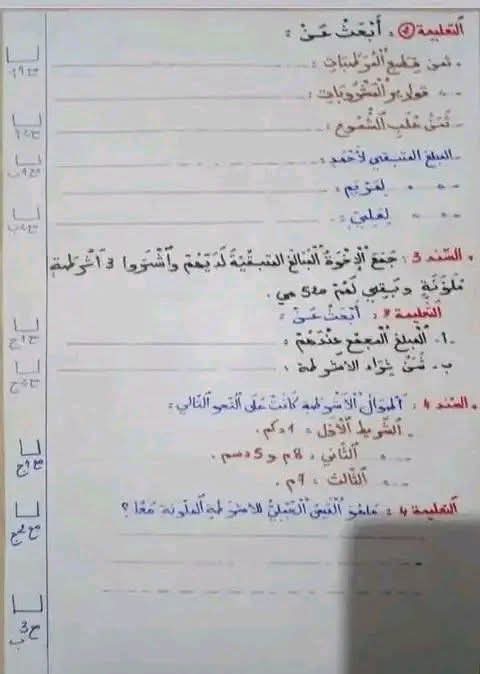 التعليمة 2 : أَبْحَثُ عَنْ :
- ثمن قطع المرطبات :
- " قوارير المشروبات :
- ثَمَنُ عُلَبِ الشُّمُوعِ :
- المبلغ المتبقي لأحمد :
- " " لمريم :
- " " لعلي :
• السّند 3 : جَمَعَ الإِخْوَةُ المَبَالِغَ المتبقّيَةَ لَدَيْهِمْ وَاشْتَرَوْا 3 أَشْرِطَةٍ
مُلَوَّنَةٍ وَبَقِيَ لَهُمْ 520 مي.
التعليمة 3 : أَبْحَثُ عَنْ :
- أ - المبلغ المجمّع عندهم :
ب - ثمن شراء الأشرطة :
• السّند 4 : أطوال الأشرطة كانت على النّحو التّالي :
- الشّريط الأوّل : 1 دكم.
- " الثّاني : 8 م و 5 دسم.
- " الثّالث : 9 م.
التعليمة 4 : ماهو القيس الجمليّ للأشرطة الملوّنة معًا ؟
مع 1 ج
مع 2 ج
مع 3
ب